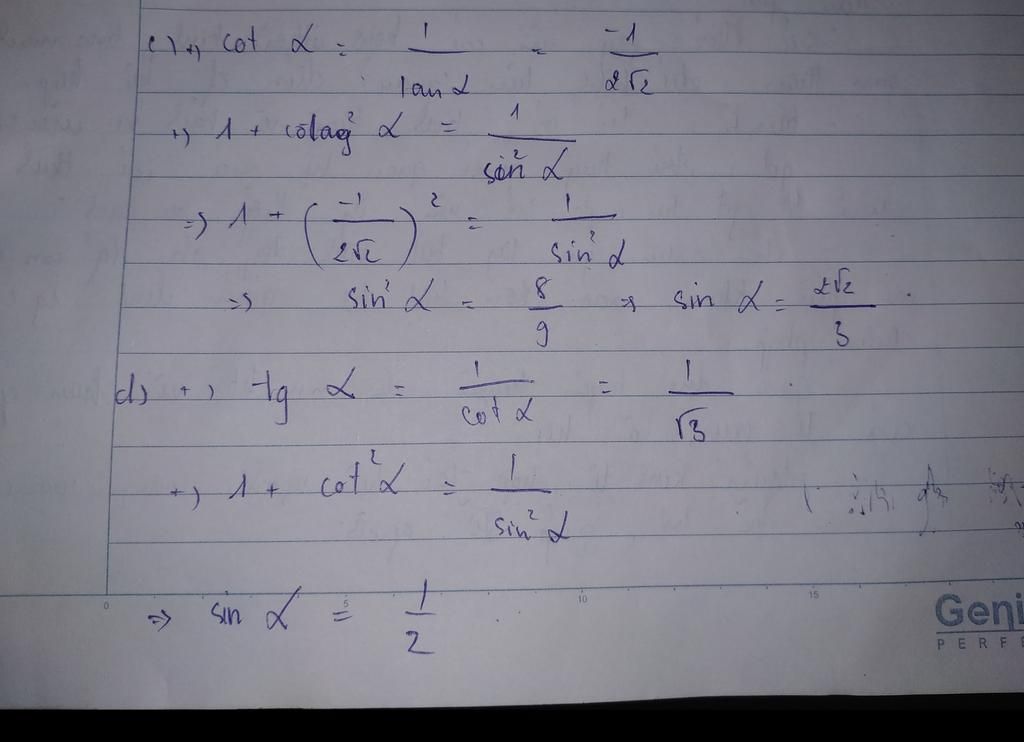 c) +) cot α = 1/tan α = -1/2√2
+) 1 + cotag² α = 1/sin² α
=> 1 + (-1/2√2)² = 1/sin² α
=> sin² α = 8/9 => sin α = 2√2/3.
d) +) tg α = 1/cot α = 1/√3.
+) 1 + cot² α = 1/sin² α
0 5 10 15
=> sin α = 1/2.
Geni
PERF